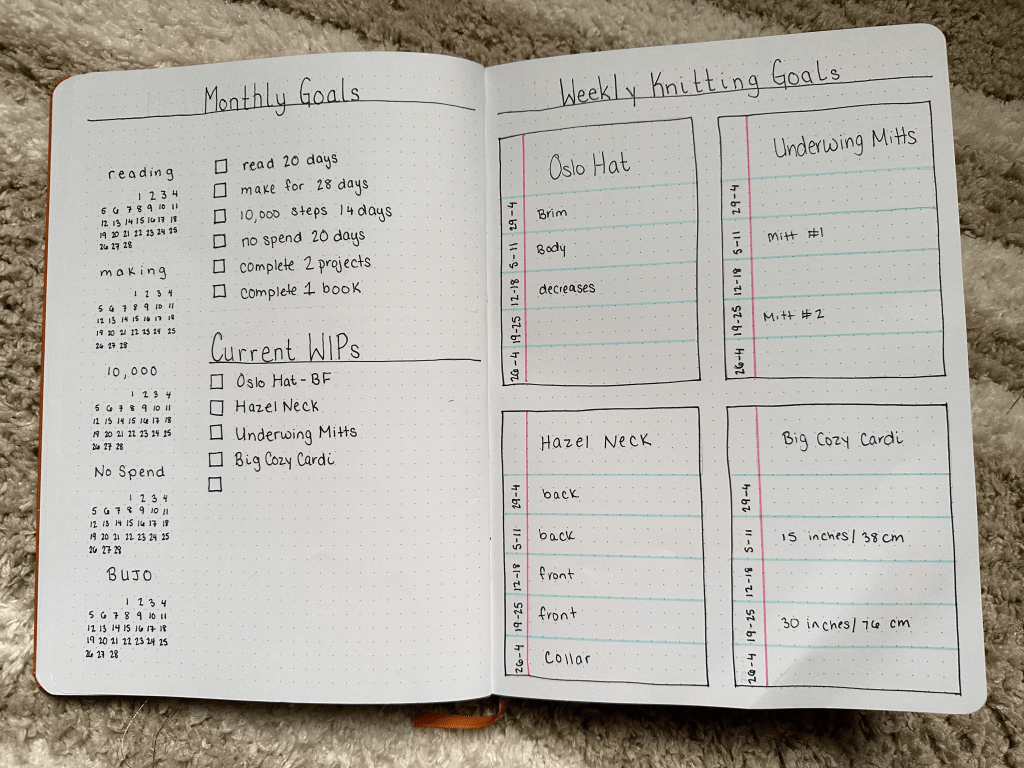 Monthly Goals
reading
1 2 3 4
5 6 7 8 9 10 11
12 13 14 15 16 17 18
19 20 21 22 23 24 25
26 27 28
making
1 2 3 4
5 6 7 8 9 10 11
12 13 14 15 16 17 18
19 20 21 22 23 24 25
26 27 28
10,000
1 2 3 4
5 6 7 8 9 10 11
12 13 14 15 16 17 18
19 20 21 22 23 24 25
26 27 28
No Spend
1 2 3 4
5 6 7 8 9 10 11
12 13 14 15 16 17 18
19 20 21 22 23 24 25
26 27 28
BUJO
1 2 3 4
5 6 7 8 9 10 11
12 13 14 15 16 17 18
19 20 21 22 23 24 25
26 27 28
read 20 days
make for 28 days
10,000 steps 14 days
no spend 20 days
complete 2 projects
complete 1 book
Current WIPs
Oslo Hat - BF
Hazel Neck
Underwing Mitts
Big Cozy Cardi
Weekly Knitting Goals
Oslo Hat
29-4 Brim
5-11 Body
12-18 decreases
19-25
26-4
Underwing Mitts
29-4
5-11 Mitt #1
12-18
19-25 Mitt #2
26-4
Hazel Neck
29-4 back
5-11 back
12-18 front
19-25 front
26-4 Collar
Big Cozy Cardi
29-4
5-11 15 inches/38 cm
12-18
19-25 30 inches/76 cm
26-4